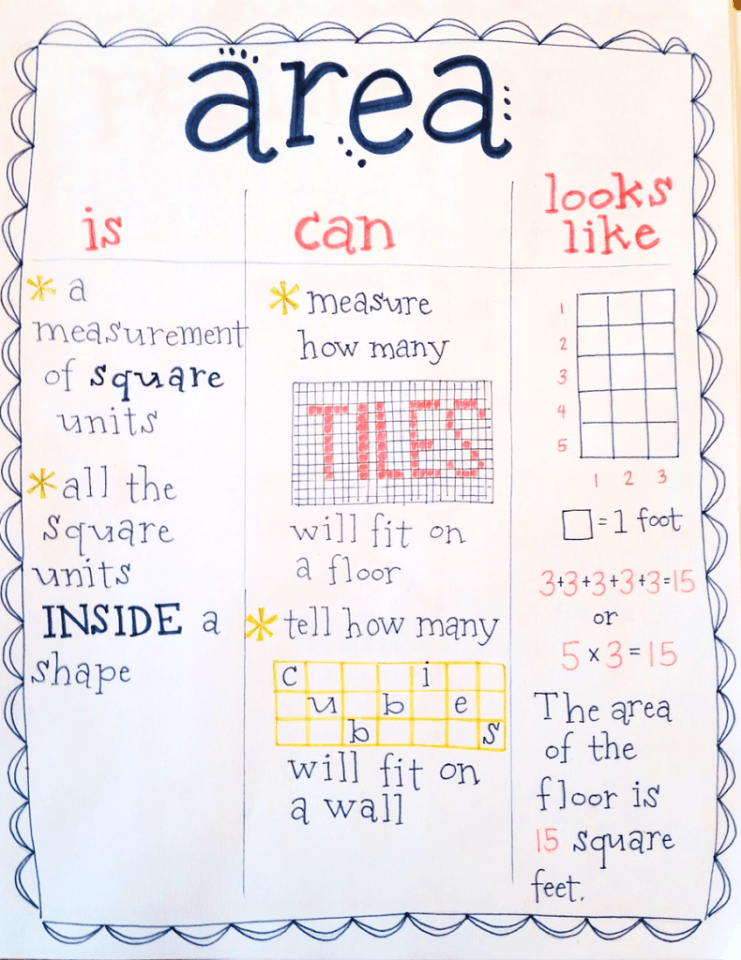 area
is
* a
measurement
of square
units
* all the
square
units
INSIDE a
shape
can
* measure
how many
TILES
will fit on
a floor
* tell how many
c u b b i e s
will fit on
a wall
looks
like
1
2
3
4
5
1 2 3
= 1 foot
3+3+3+3+3=15
or
5 x 3 = 15
The area
of the
floor is
15 square
feet.